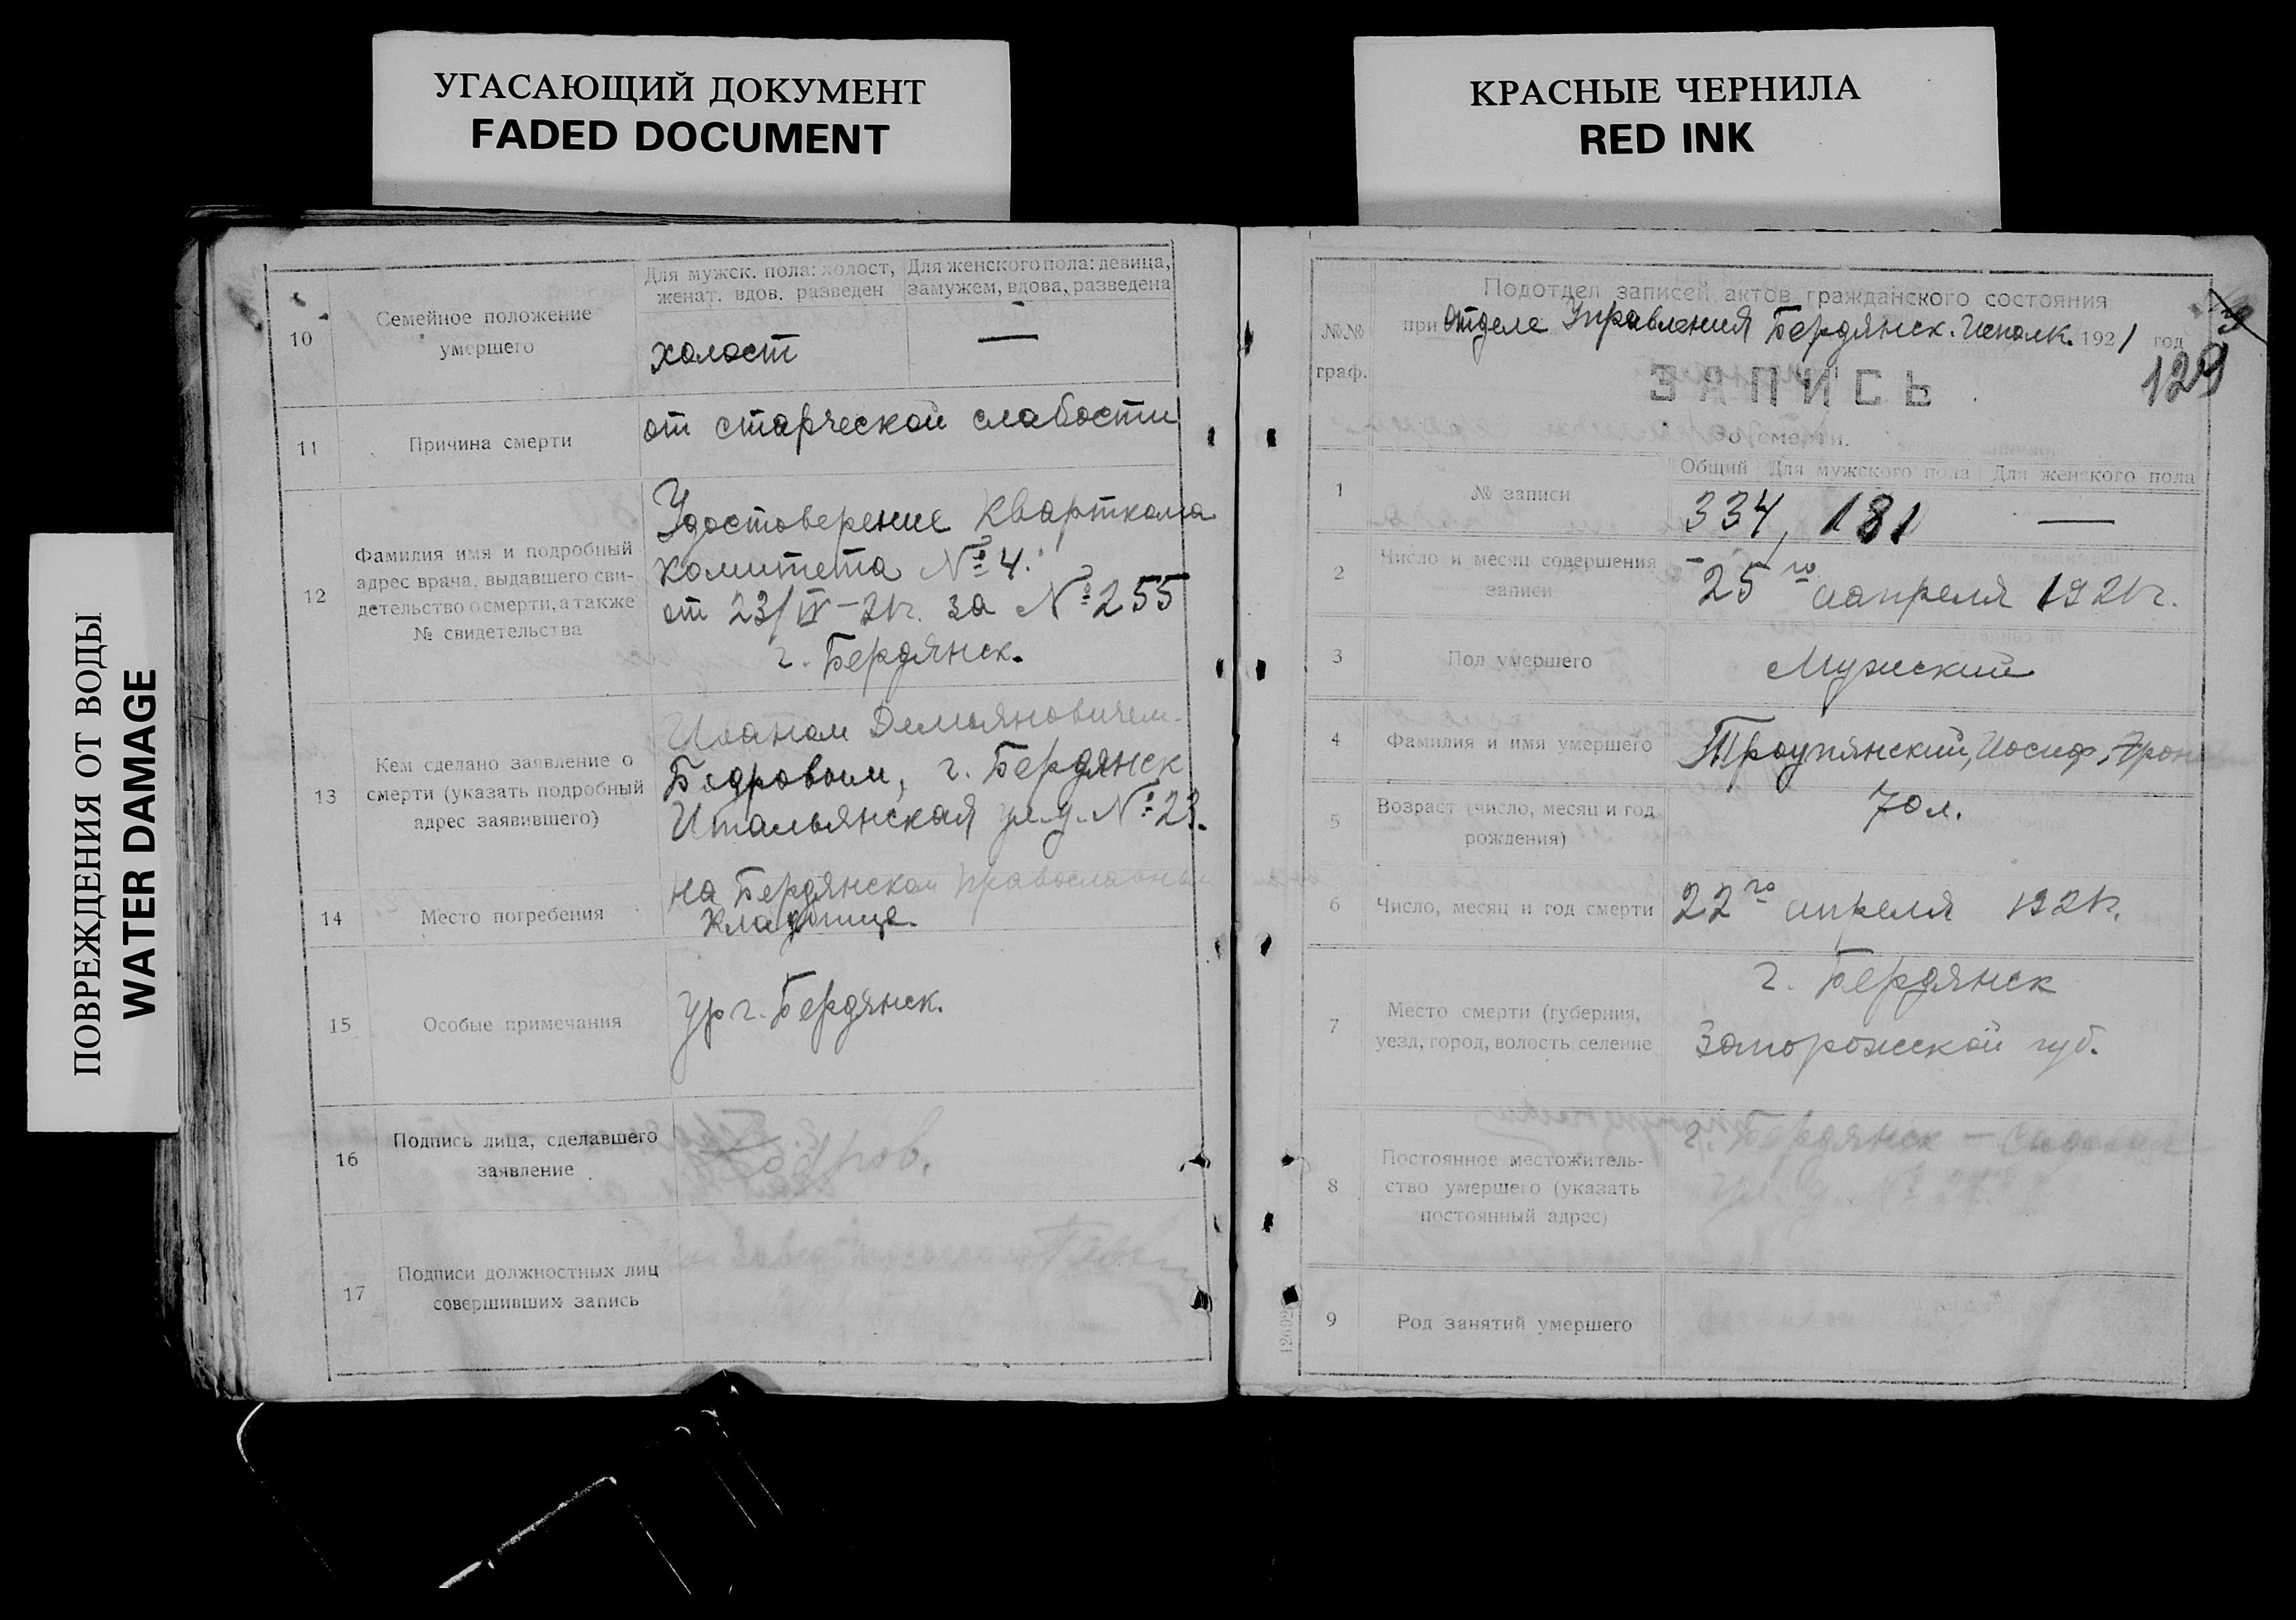 УГАСАЮЩИЙ ДОКУМЕНТ
FADED DOCUMENT
КРАСНЫЕ ЧЕРНИЛА
RED INK
ПОВРЕЖДЕНИЯ ОТ ВОДЫ
WATER DAMAGE
Для мужск. пола: холост, женат, вдов, разведен
Для женского пола: девица, замужем, вдова, разведена
10
Семейное положение
умершего
холост
—
11
Причина смерти
от старческой слабости
12
Фамилия имя и подробный
адрес врача, выдавшего сви-
детельство о смерти, а также
№ свидетельства
Удостоверение Кварткома
комитета № 4.
от 23/IV-21г. за № 255
г. Бердянск.
13
Кем сделано заявление о
смерти (указать подробный
адрес заявившего)
Иваном Демьяновичем
Бодровым, г. Бердянск
Итальянская ул. д. № 23.
14
Место погребения
на Бердянском православном
кладбище.
15
Особые примечания
ур г. Бердянск.
16
Подпись лица, сделавшего
заявление
Бодров.
17
Подписи должностных лиц
совершивших запись
№№
граф.
Подотдел записей актов гражданского состояния
при Отделе Управления Бердянск. Исполк. 1921 год
129
ЗАПИСЬ
о смерти.
Общий Для мужского пола Для женского пола
1
№ записи
334, 181 —
2
Число и месяц совершения
записи
25го аапреля 1921г.
3
Пол умершего
Мужский
4
Фамилия и имя умершего
Троупянский, Иосиф,
5
Возраст (число, месяц и год
рождения)
70 л.
6
Число, месяц и год смерти
22го апреля 1921г.
7
Место смерти (губерния,
уезд, город, волость, селение
г. Бердянск
Запорожской губ.
8
Постоянное местожитель-
ство умершего (указать
постоянный адрес)
г. Бердянск —
ул. д. №
9
Род занятий умершего